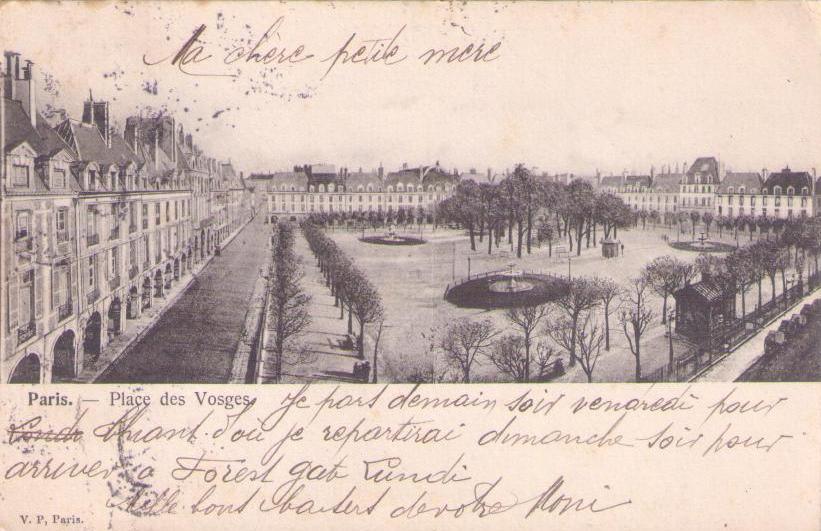 Ma chère petite mère
Paris. — Place des Vosges.
Je pars demain soir vendredi pour
d'où je repartirai dimanche soir pour
arriver a Forest Lundi
Mille bons baisers de votre
V. P, Paris.